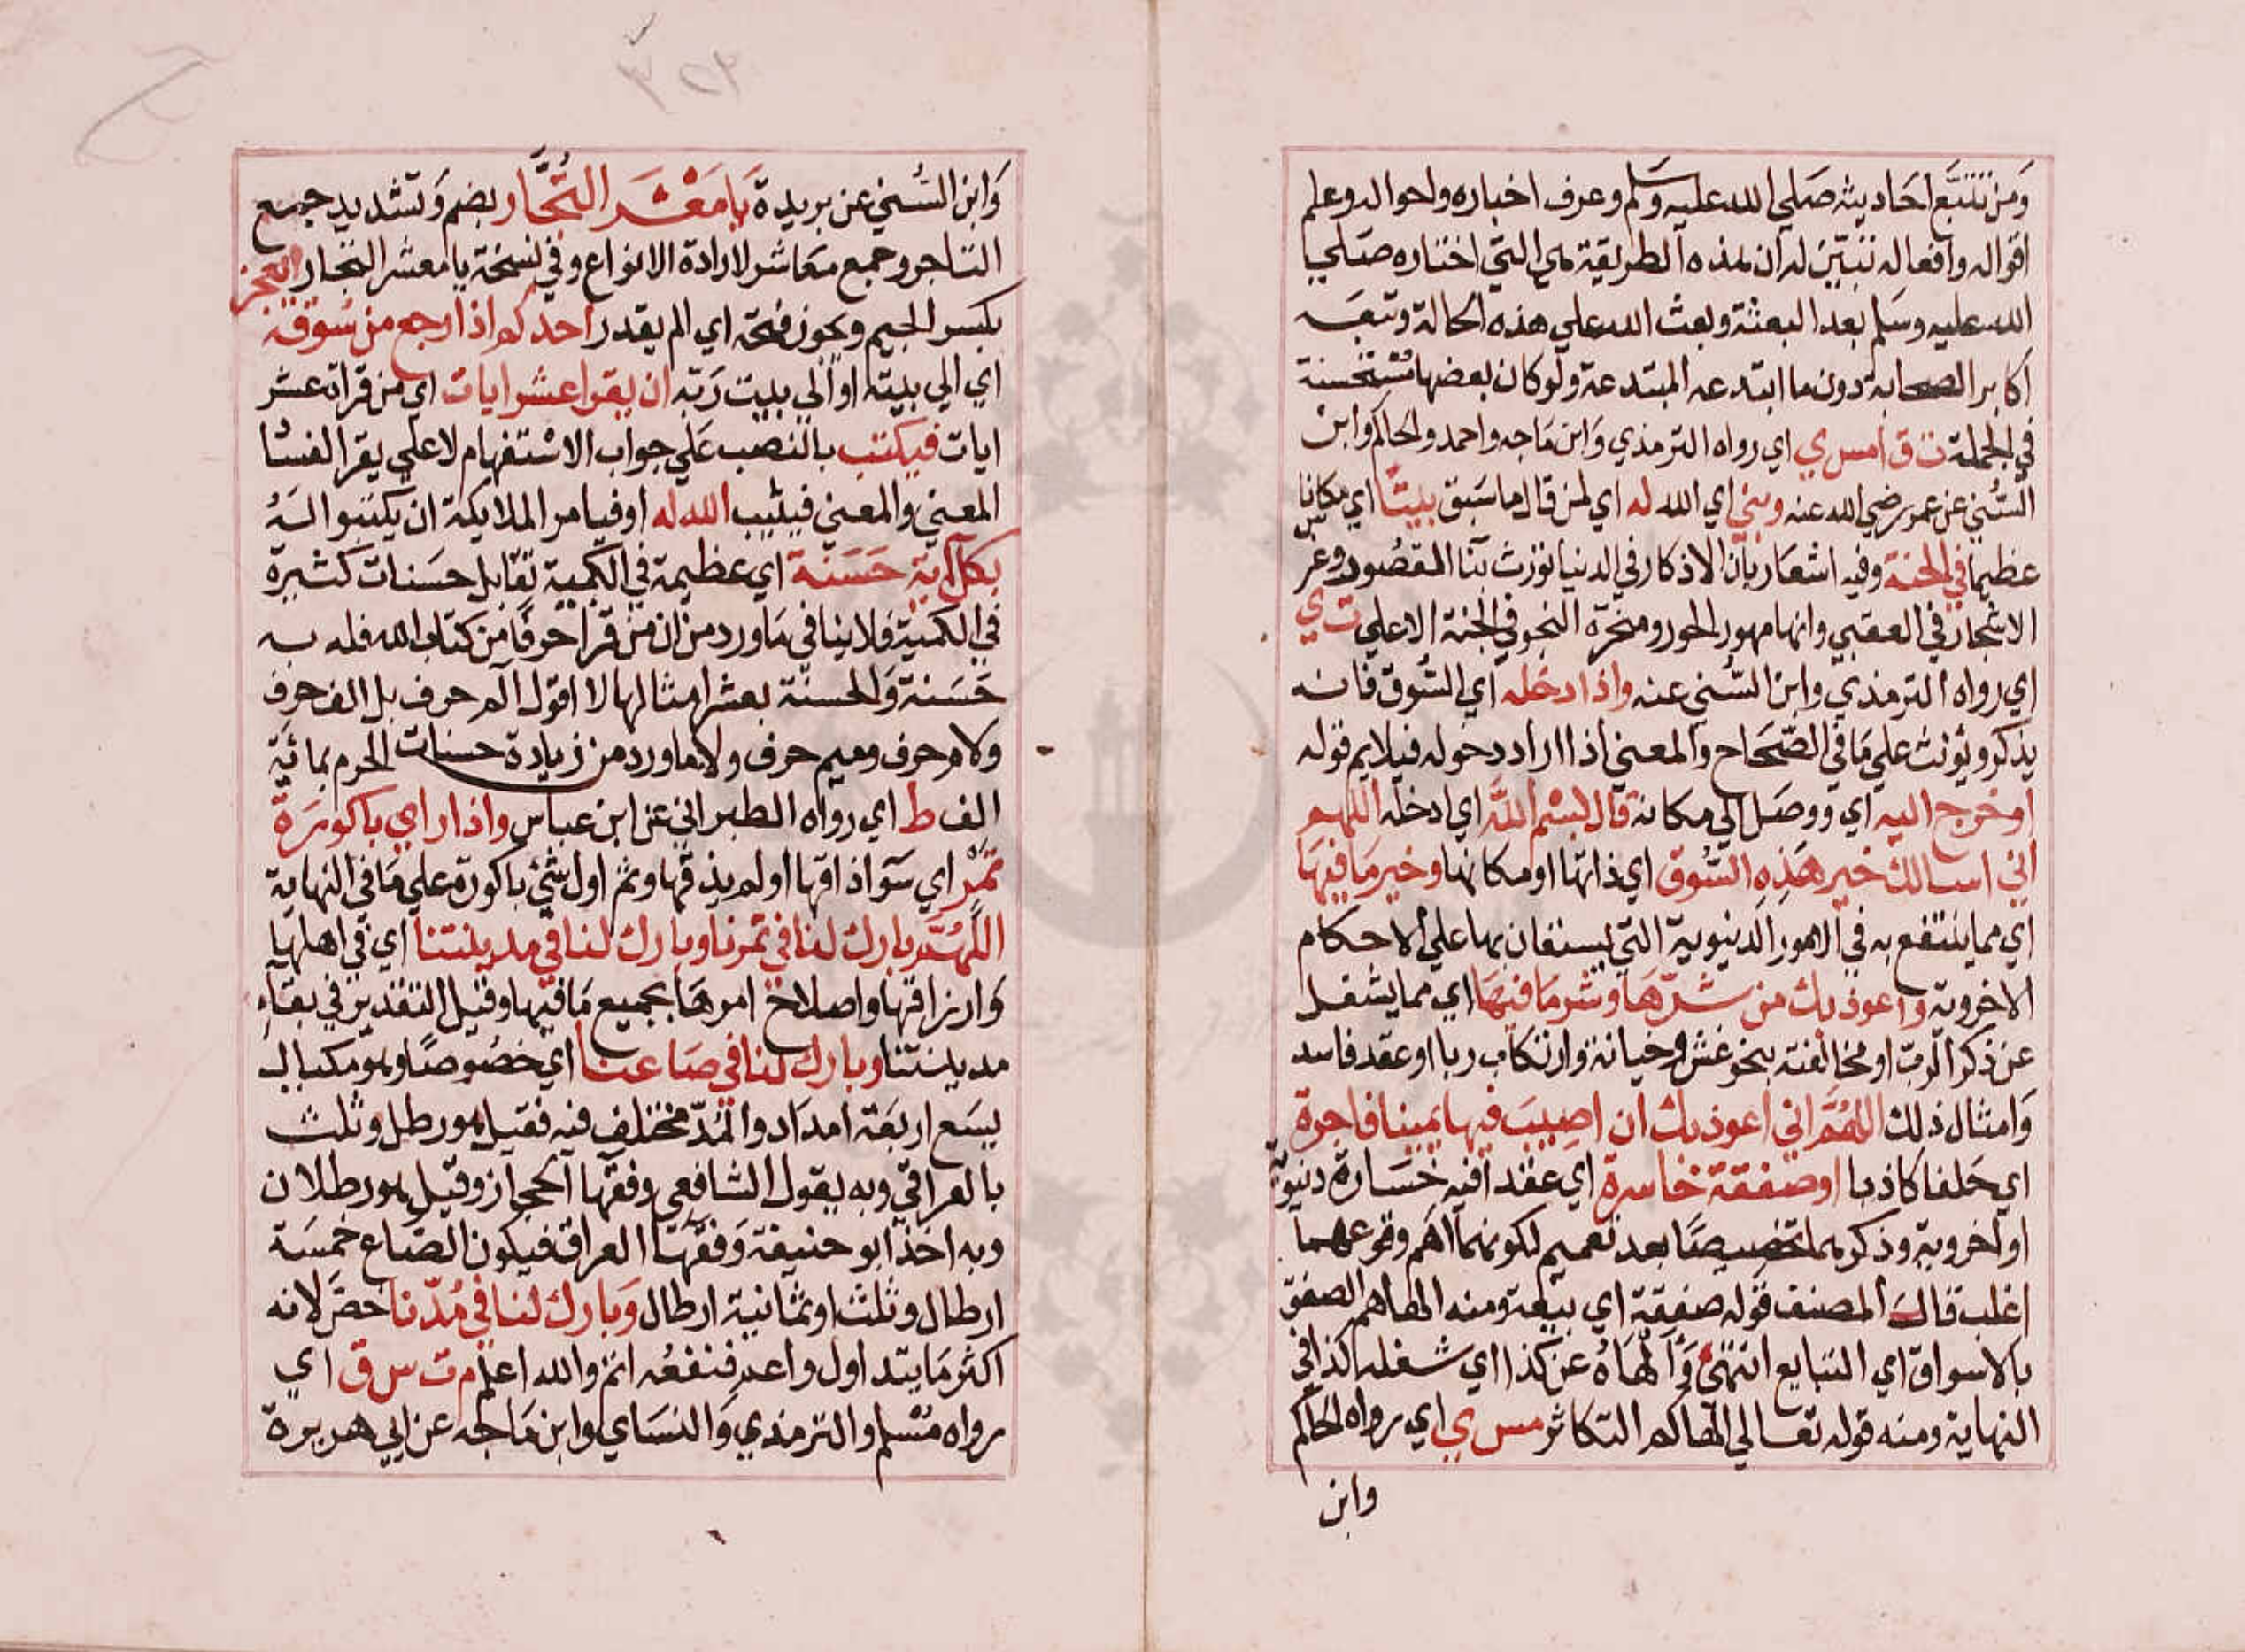 ومن تتبع احاديثه صلي الله عليه وسلم وعرف اخباره واحواله وعلم
اقواله وافعاله تبين له ان هذه الطريقة هي التي اختاره صلي
الله عليه وسلم بعد البعثة وبعث الله علي هذه الحالة وتبعه
اكابر الصحابة دون ما ابتدعه المبتدعة ولو كان بعضها مستحسنة
في الجملة ت ق امس ي اي رواه الترمذي وابن ماجه واحمد والحاكم وابن
السني عن عمر رضي الله عنه وبني اي الله له اي لمن قال ما سبق بيتا اي مكانا
عظيما في الجنة وفيه اشعار بان الاذكار في الدنيا تورث بنا القصور وغرس
الاشجار في العقبي وانها مهور الحور في الجنة الاعلي ت ي
اي رواه الترمذي وابن السني عنه واذا دخله اي السوق فانه
يذكر ويونث علي ما في الصحاح والمعني اذا اراد دخوله فيلايم قوله
او خرج اليه اي ووصل الي مكانه قال بسم الله اي ادخله اللهم
اني اسالك خير هذه السوق اي ذاتها او مكانها وخير ما فيها
اي مما ينتفع به في الامور الدنيوية التي يستعان بها علي الاحكام
الاخروية واعوذ بك من شرها وشر ما فيها اي مما يشغل
عن ذكر الرب او مخالفته بنحو غش وخيانة وارتكاب ربا او عقد فاسد
وامثال ذلك اللهم اني اعوذ بك ان اصيب فيها يمينا فاجرة
اي حلفا كاذبا او صفقة خاسرة اي عقدا فيه خسارة دنيوية
او اخروية وذكرهما تخصيصا بعد تعميم لكونهما اهم ووقوعهما
اغلب قال المصنف قوله صفقة اي بيعة ومنه الهاهم الصفق
بالاسواق اي التبايع انتهى والهاه عن كذا اي شغله كذا في
النهاية ومنه قوله تعالي الهاكم التكاثر مس ي اي رواه الحاكم
وابن
وابن السني عن بريدة يا معشر التجار بضم وتشديد جمع
التاجر وجمع معاشر لارادة الانواع وفي نسخة يا معشر التجار ايعجز
بكسر الجيم ويجوز فتحه اي الم يقدر احدكم اذا رجع من سوقه
اي الي بيته او الي بيت ربه ان يقرا عشر ايات اي من قراته عشر
ايات فيكتب بالنصب علي جواب الاستفهام لا علي يقرا لفساد
المعني والمعني فيثيب الله له او فيامر الملايكة ان يكتبوا له
بكل آية حسنة اي عظيمة في الكمية تقابل حسنات كثيرة
في الكمية فلا ينافي ما ورد من ان من قرا حرفا من كتاب الله فله به
حسنة والحسنة بعشر امثالها لا اقول الم حرف بل الف حرف
ولام حرف وميم حرف ولا ما ورد من زيادة حسنات الحرم بمائة
الف ط اي رواه الطبراني عن ابن عباس واذا راي باكورة
ثمر اي سوا ذاقها او لم يذقها وثم اول شئ باكورة علي ما في النهاية
اللهم بارك لنا في ثمرنا وبارك لنا في مدينتنا اي في اهلها
وارزاقها واصلاح امرها بجميع ما فيها وقيل التقدير في بقاء
مدينتنا وبارك لنا في صاعنا اي خصوصا وهو مكيال
يسع اربعة امداد والمد مختلف فيه فقيل هو رطل وثلث
بالعراقي وبه يقول الشافعي وفقها الحجاز وقيل هو رطلان
وبه اخذ ابو حنيفة وفقها العراق فيكون الصاع خمسة
ارطال وثلث او ثمانية ارطال وبارك لنا في مدنا خص لانه
اكثر ما يتداول واعد فنفعه اتم والله اعلم م ت س ق اي
رواه مسلم والترمذي والنساي وابن ماجه عن ابي هريرة